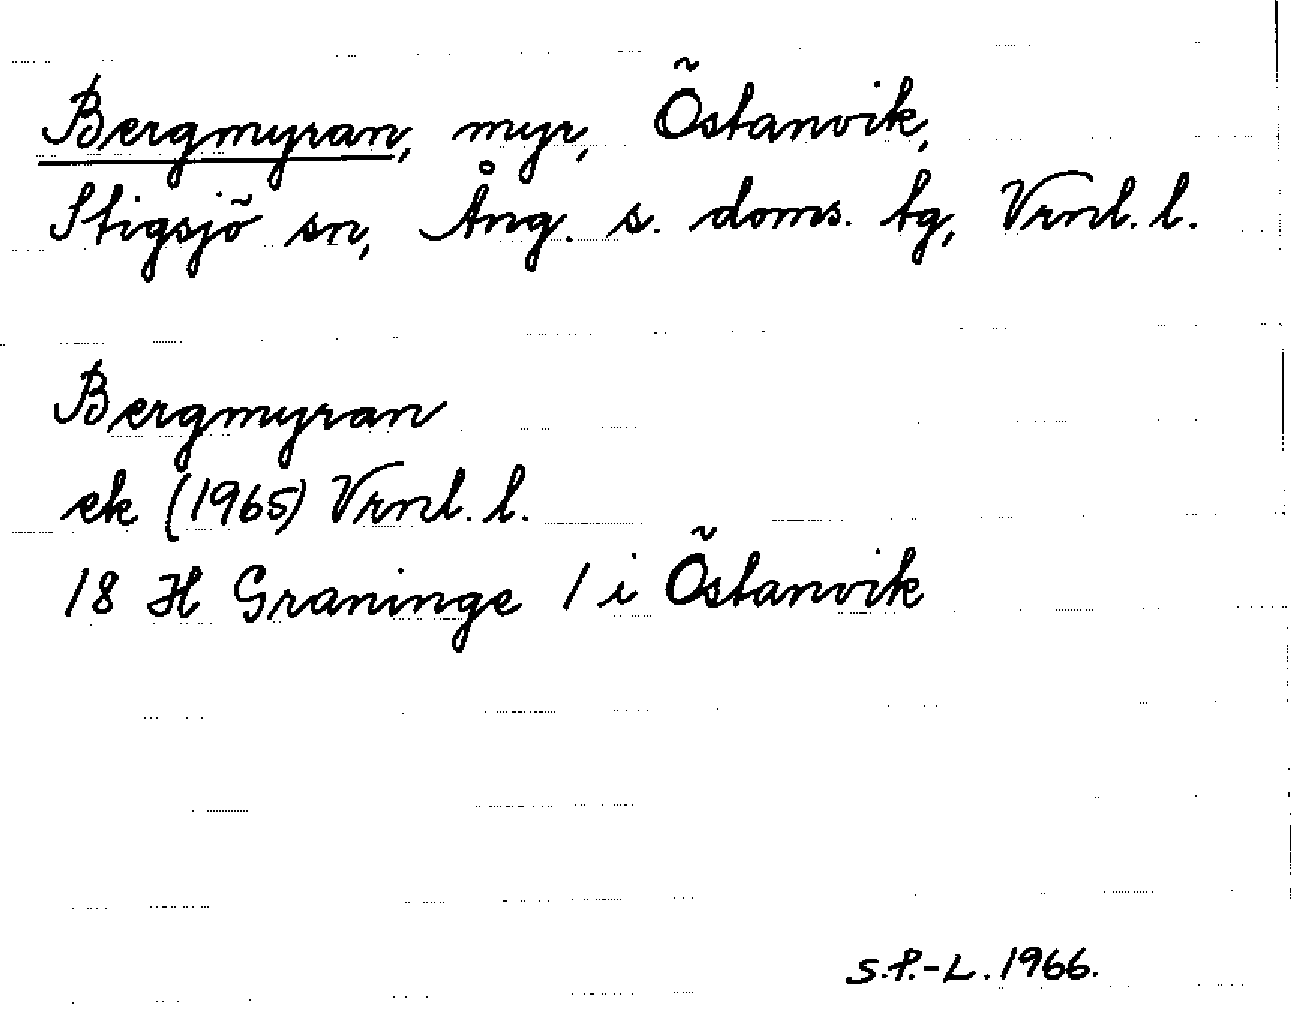 Bergmyran, myr, Östanvik,
Stigsjö sn, Ång. s. doms. tg, Vrnl. l.
Bergmyran
ek (1965) Vrnl. l.
18 H Graninge 1 i Östanvik
S.P.-L. 1966.